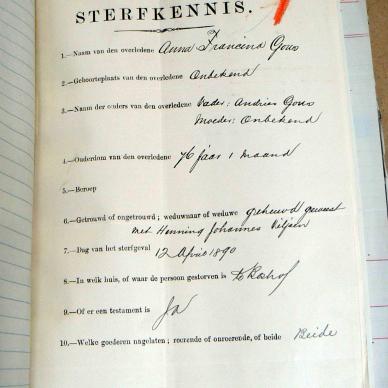 STERFKENNIS.
1.—Naam van den overledene Anna Francina Gous
2.—Geboorteplaats van den overledene Onbekend
3.—Naam der ouders van den overledene Vader: Andries Gous
Moeder: Onbekend
4.—Ouderdom van den overledene 76 jaar 1 maand
5.—Beroep
6.—Getrouwd of ongetrouwd; weduwnaar of weduwe getrouwd geweest
met Henning Johannes Viljoen
7.—Dag van het sterfgeval 12 April 1890
8.—In welk huis, of waar de persoon gestorven is te Boshof
9.—Of er een testament is Ja
10.—Welke goederen nagelaten; roerende of onroerende, of beide Beide